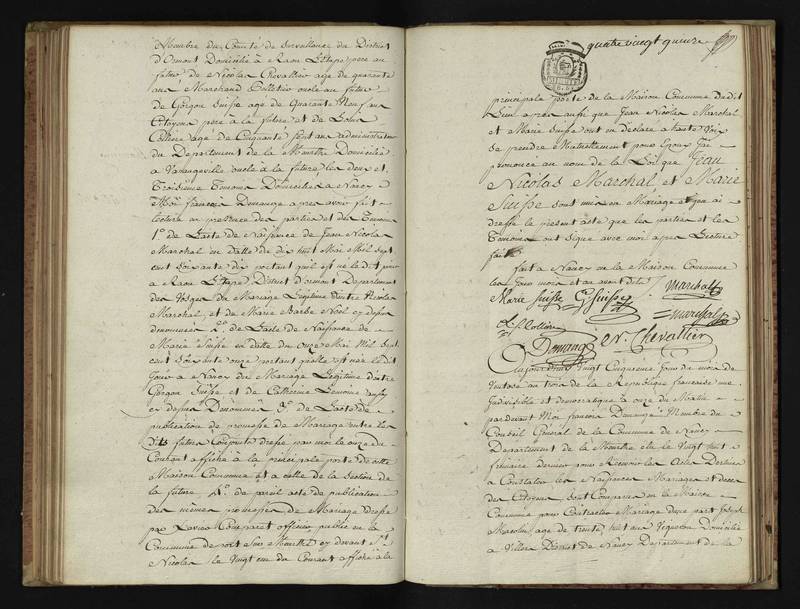 Membre du Comité de Surveillance du District
d'Ormont Domicilié à Raon L'Etape pere au
futur, de Nicolas Chevallier age de quarante
ans Marchand Culottier oncle au futur
de Gorgon Suisse age de Quarante Neuf ans
Citoyen pere à la future et de Louis
Collière age de Cinquante sept ans administrateur
du Departement de la Meurthe Domicilié
a oncle à la future les deux et
Troisieme Temoins Domiciliés a Nancy
Moi françois Domange apres avoir fait
lecture en presence des parties et des Temoins
1º de L'acte de Naissance de Jean Nicolas
Marchal en datte du dix huit Mai Mil Sept
cent Soixante dix portant qu'il est né le dit jour
a Raon L'Etape District d'ormont Departement
des Vosges du Mariage Légitime d'entre Nicolas
Marchal, et de Marie Barbe Noel cy dessus
denommés 2º de L'acte de Naissance de
Marie Suisse en datte du onze Mai Mil Sept
cent Soixante onze portant qu'elle est née le dit
jour à Nancy du Mariage Légitime d'entre
Gorgon Suisse et de Catherine Lemoine aussy
cy dessus Denommés 3º de L'acte de
publication de promesse de Mariage entre les
Dits futurs Conjoints dressé par moi le onze du
Courant affiché à la principale porte de cette
Maison Commune et a celle de la Section de
la future 4º de pareil acte de publication
des mêmes promesses de Mariage dressé
par officier public en la
Commune de port Sur Meurthe cy devant St
Nicolas le Vingt un du Courant affiché à la
quatre vingt quinze
principale porte de la Maison Commune dudit
Lieu apres aussi que Jean Nicolas Marchal
et Marie Suisse ont eu déclaré a haute Voix
se prendre Mutuellement pour Epoux J'ai
prononcé au nom de la Loi que Jean
Nicolas Marchal, et Marie
Suisse sont unis en Mariage et j'en ai
dressé le present acte que les parties et les
Temoins ont signé avec moi apres Lecture
faite
fait a Nancy en la Maison Commune
les Jour mois et an avant dits
Marie Suisse G Suisse Marchal
Collière marchal
Domange N. Chevallier
Aujourd'hui Vingt Cinquieme Jour du mois de
Ventose an trois de la Republique francaise une
Indivisible et democratique a onze du Matin
pardevant Moi françois Domange Membre du
Conseil Général de la Commune de Nancy
Departement de la Meurthe élu le Vingt huit
frimaire dernier pour Recevoir les Actes Destinés
a Constater les Naissances Mariages et deces
des Citoyens, sont Comparus en la Maison
Commune pour Contracter Mariage d'une part Joseph
age de trente huit ans Vigneron domicilié
a Villers District de Nancy Departement de la